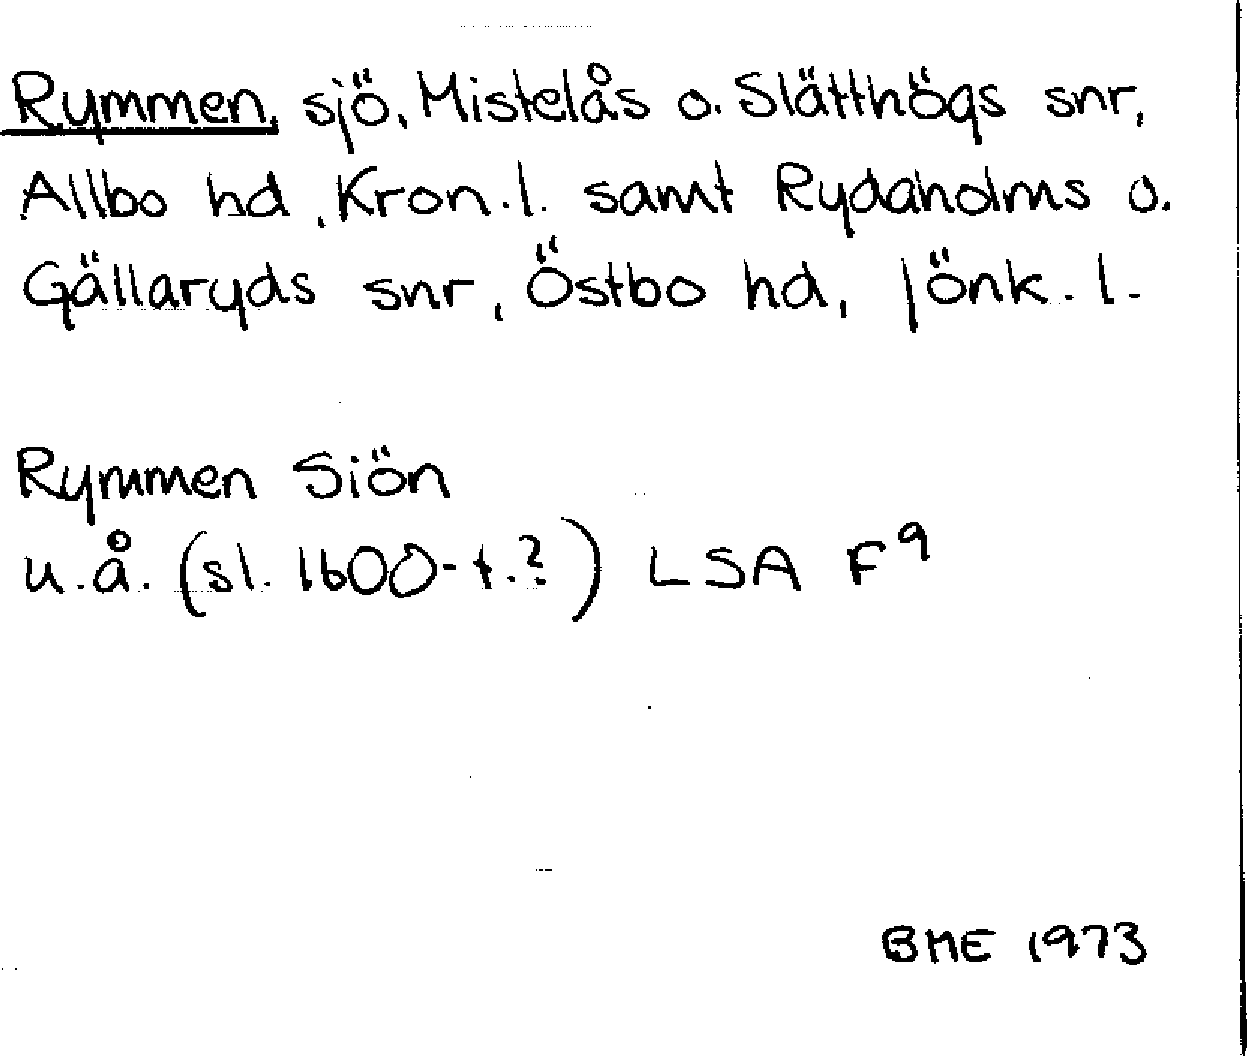 Rymmen, sjö, Mistelås o. Slätthögs snr,
Allbo hd, Kron.l. samt Rydaholms o.
Gällaryds snr, Östbo hd, Jönk.l.
Rymmen Siön
u.å. (sl. 1600-t.?) LSA F9
BME 1973